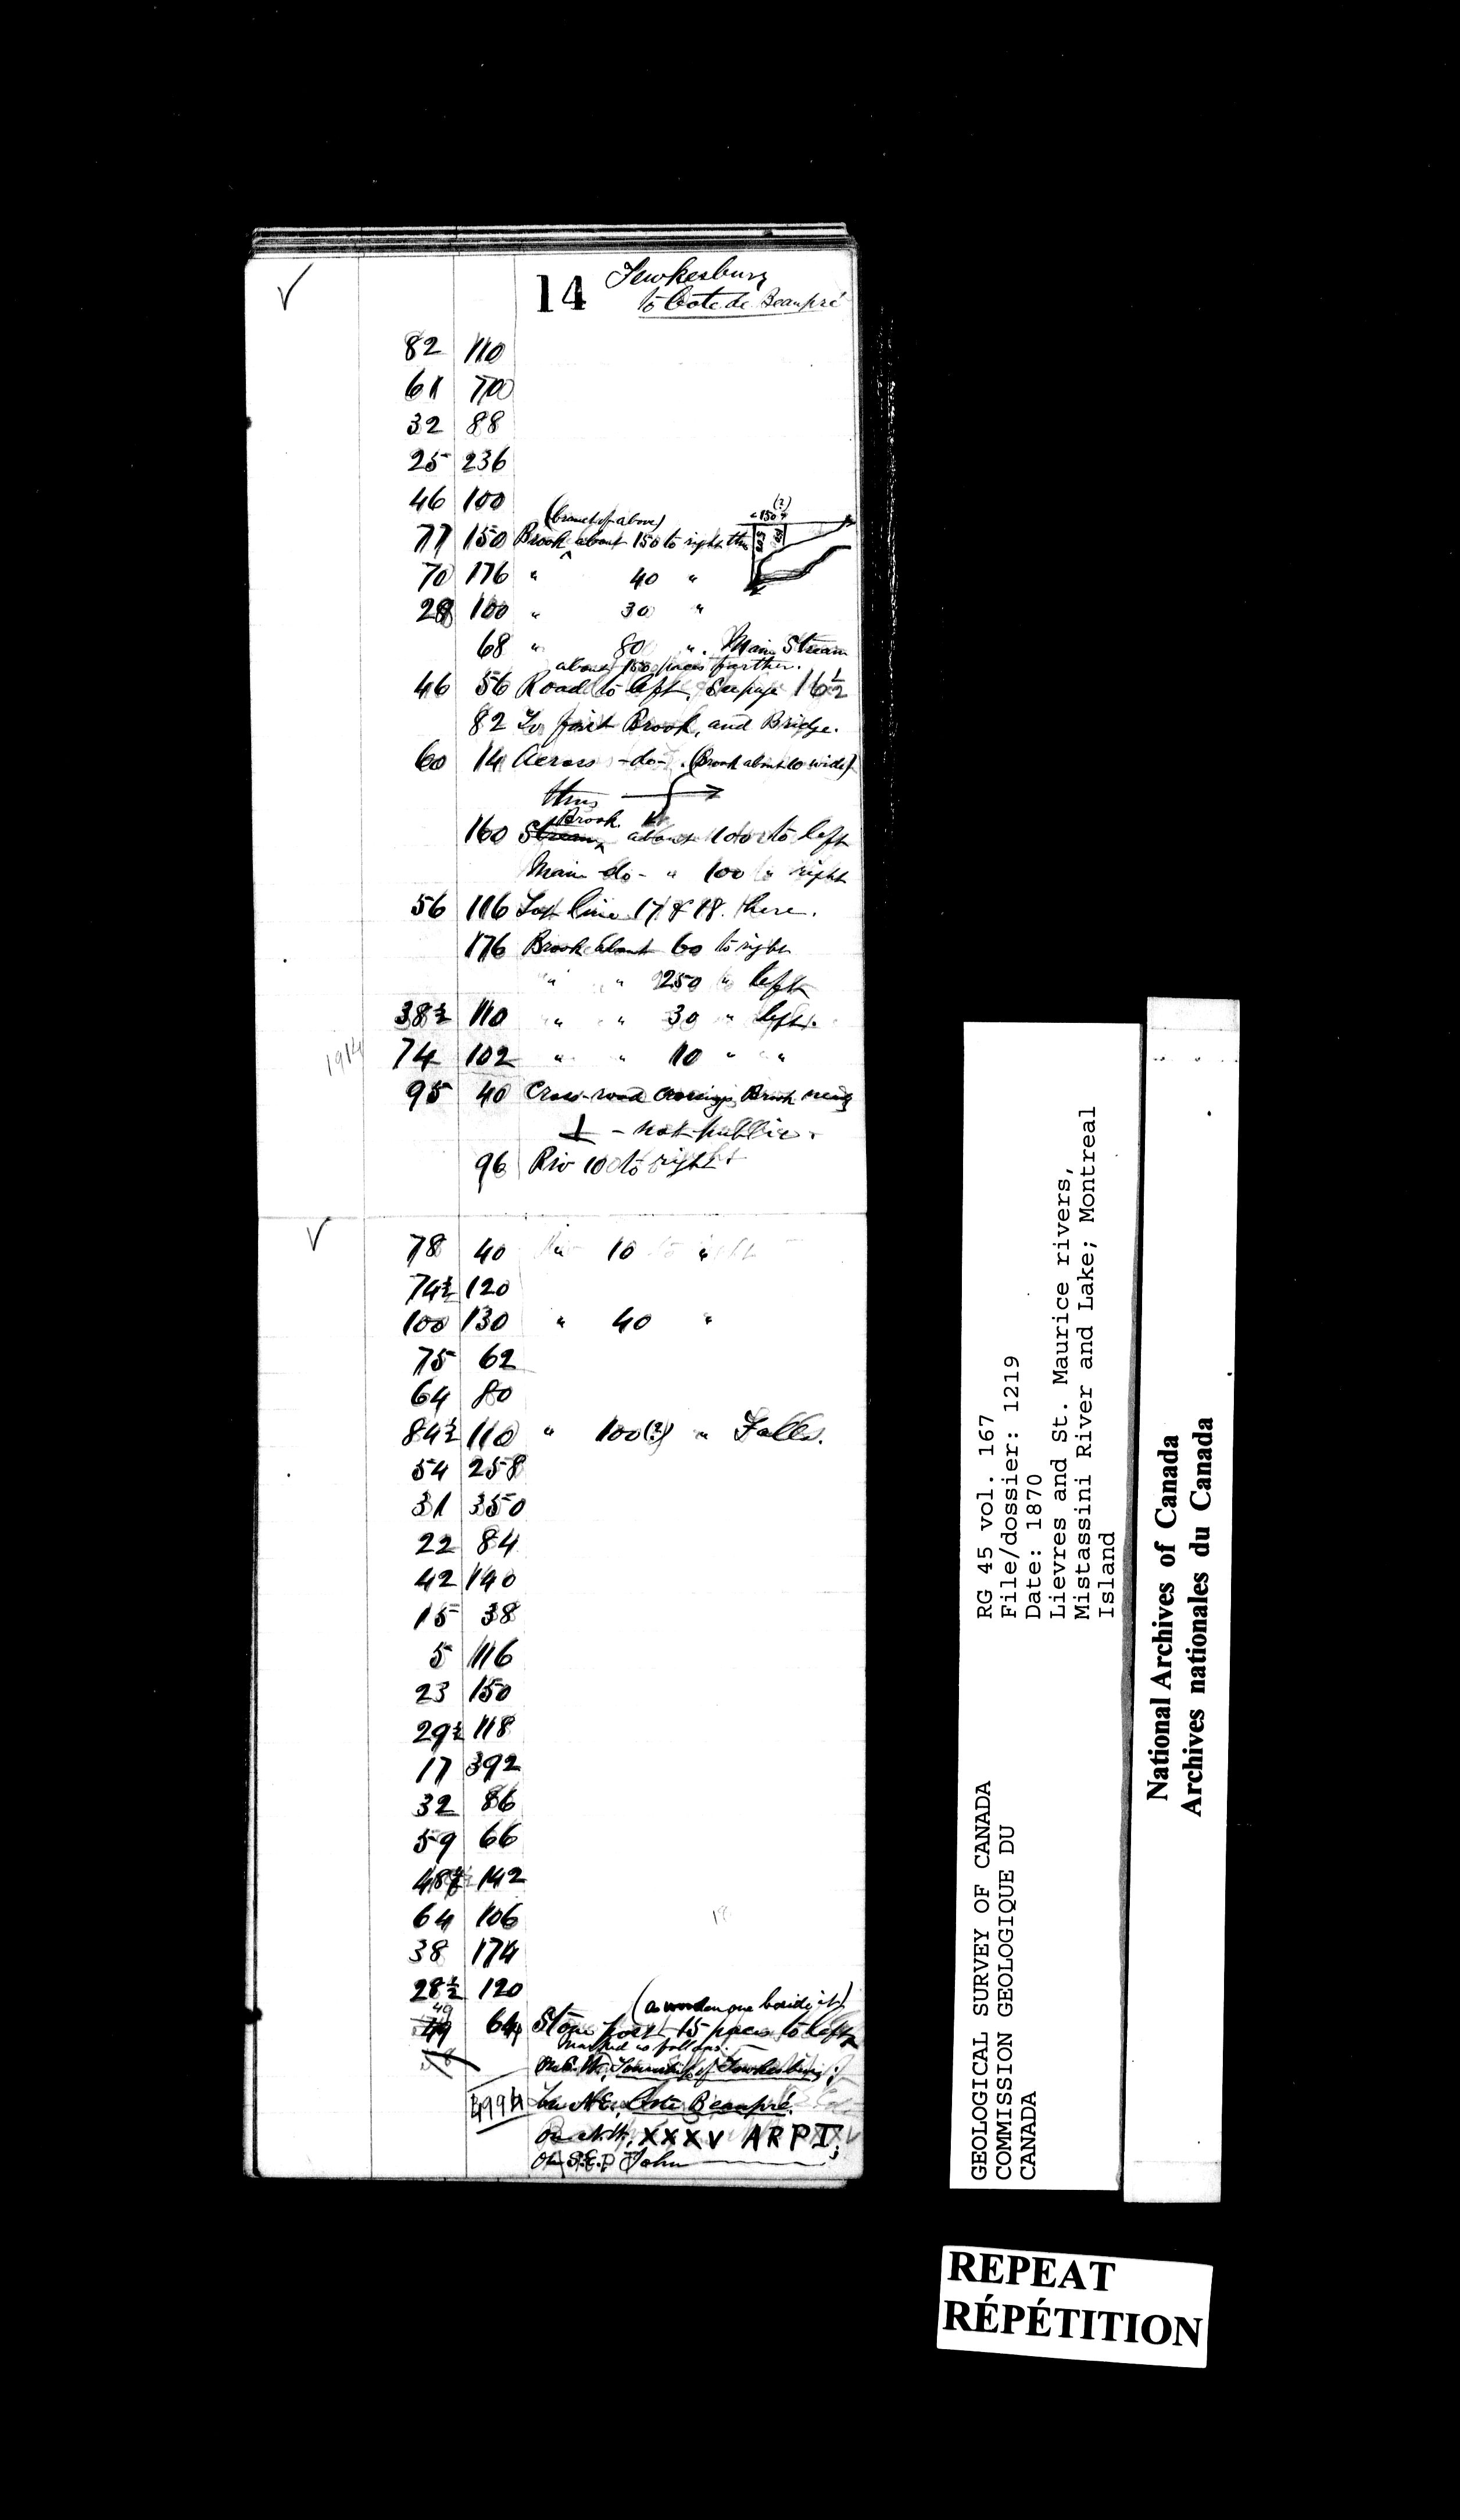 14 Tewkesbury
to Cote de Beaupré
82 110
61 700
32 88
25 236
46 100
(branch of above) (?)
<150>
77 150 Brook ^ about 150 to right thus
70 176 " 40 "
28 100 " 30 "
68 " 80 ". Main Stream
about 150 paces further.
46 56 Road to left, See page 16½
82 To first Brook, and Bridge.
60 14 Across -do-. (Brook about 10 wide)
thus
Brook
160 Stream ^ about 100 to left
Main -do- " 100 " right
56 116 Lot line 17 & 18. here.
176 Brook about 60 to right
" " 250 " left
38½ 110 " " 30 " left.
1914
74 102 " " 10 " "
95 40 Cross-road crossing Brook
- not public.
96 Riv 10 to right
78 40 " 10 "
74½ 120
100 130 " 40 "
75 62
64 80
84½ 110 " 100(?) " Falls.
54 258
31 350
22 84
42 140
15 38
5 116
23 150
29½ 118
17 392
32 86
59 66
48½ 142
64 106
38 174
28½ 120
(a wooden one beside it)
49
49 64 Stone post 15 paces to left
marked as follows:
On S.W. Township of Tewkesbury;
4994 On N.E. Cote Beaupré.
On N.W. XXXV ARPT;
On S.E. P John
RG 45 vol. 167
File/dossier: 1219
Date: 1870
Lievres and St. Maurice rivers,
Mistassini River and Lake; Montreal
Island
GEOLOGICAL SURVEY OF CANADA
COMMISSION GEOLOGIQUE DU
CANADA
National Archives of Canada
Archives nationales du Canada
REPEAT
RÉPÉTITION